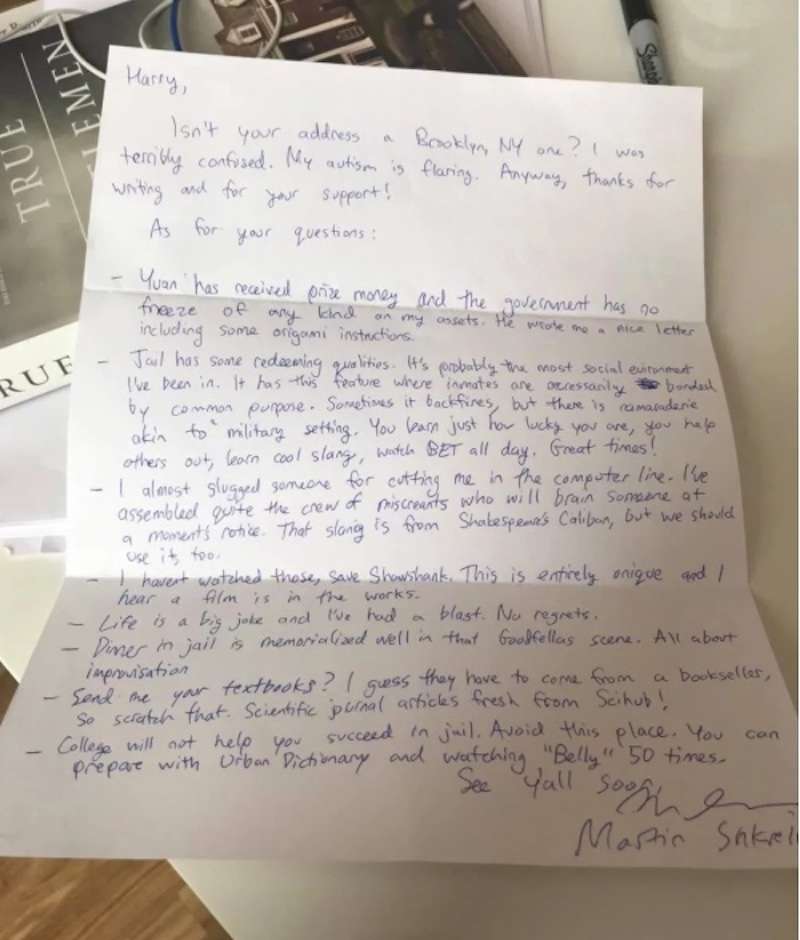 TRUE
ELEMEN
Sharpie
RUE
Harry,
Isn't your address a Brooklyn, NY one? I was
terribly confused. My autism is flaring. Anyway, thanks for
writing and for your support!
As for your questions:
- Yuan has received prize money and the government has no
freeze of any kind on my assets. He wrote me a nice letter
including some origami instructions.
- Jail has some redeeming qualities. It's probably the most social evironment
I've been in. It has this feature where inmates are necessarily bonded
by common purpose. Sometimes it backfires, but there is camaraderie
akin to military setting. You learn just how lucky you are, you help
others out, learn cool slang, watch BET all day. Great times!
- I almost slugged someone for cutting me in the computer line. I've
assembled quite the crew of miscreants who will brain someone at
a moment's notice. That slang is from Shakespeare's Caliban, but we should
use it, too.
- I haven't watched those, save Shawshank. This is entirely unique and I
hear a film is in the works.
- Life is a big joke and I've had a blast. No regrets.
- Dinner in jail is memorialized well in that Goodfellas scene. All about
improvisation
- Send me your textbooks? I guess they have to come from a bookseller,
so scratch that. Scientific journal articles fresh from Scihub!
- College will not help you succeed in jail. Avoid this place. You can
prepare with Urban Dictionary and watching "Belly" 50 times.
See y'all soon,
Martin Shkreli